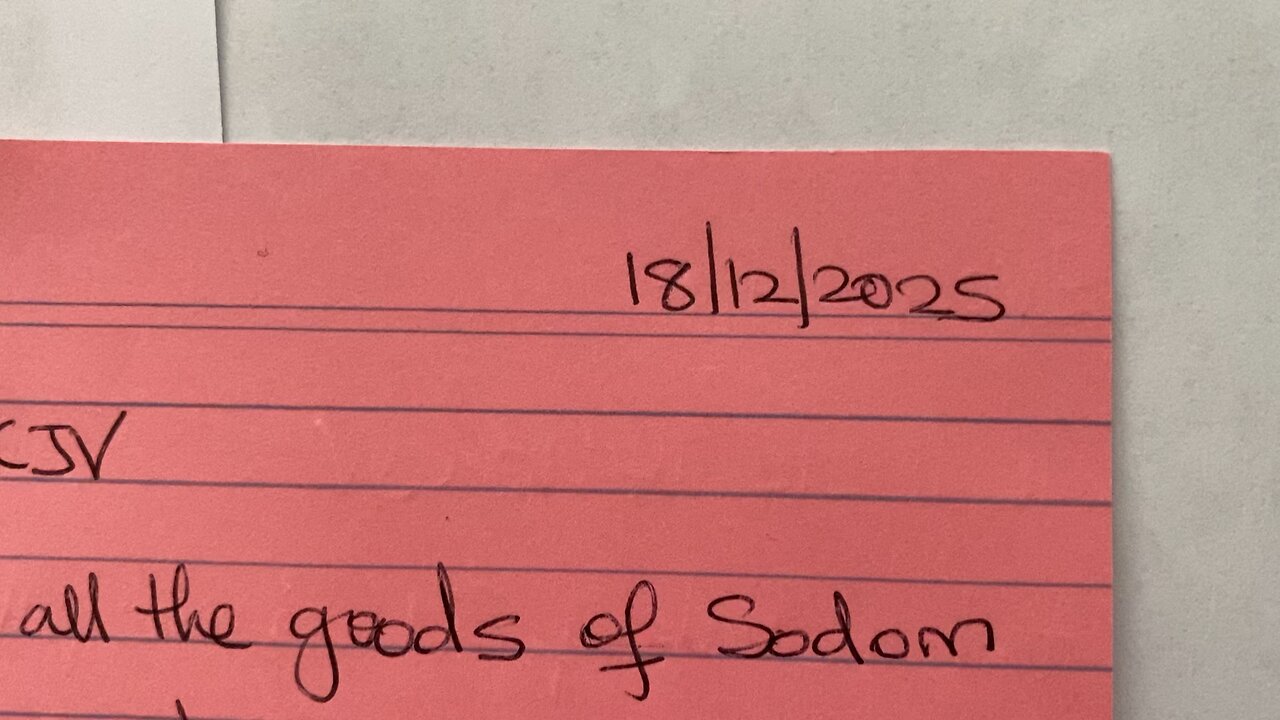 18/12/2025
KJV
all the goods of Sodom